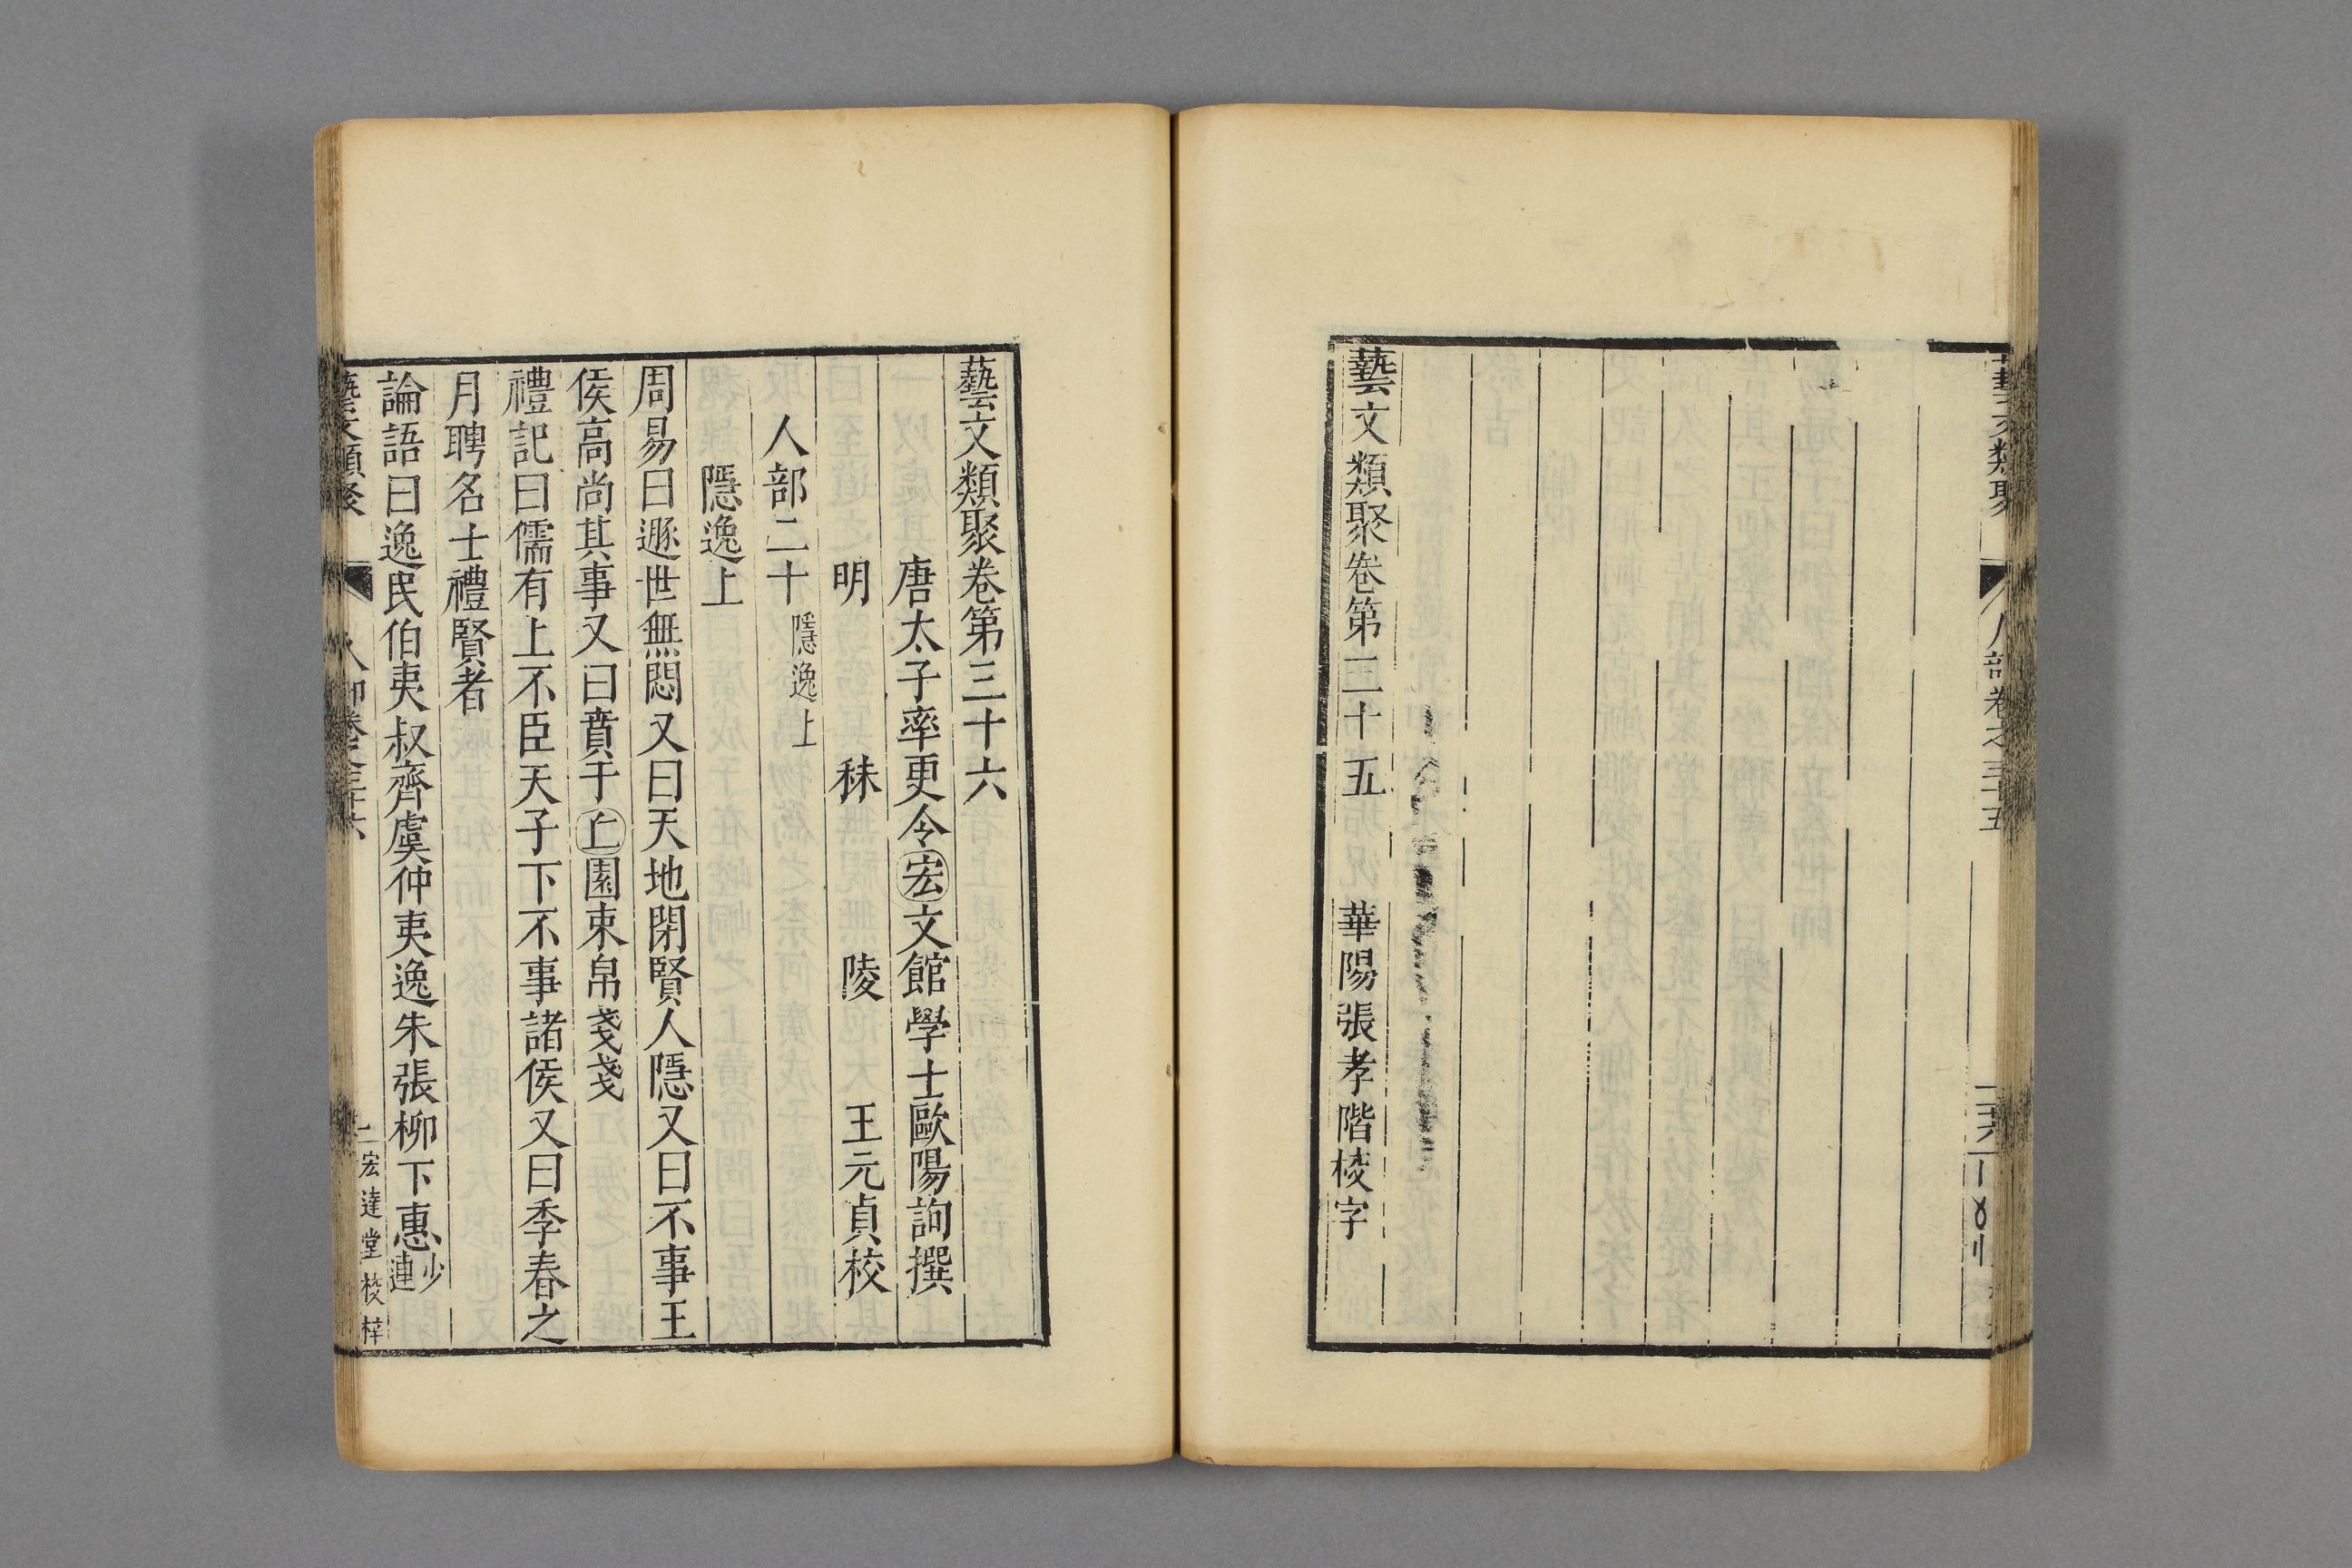 藝文類聚
人部卷之三十五
藝文類聚卷第三十五 華陽張孝階棱字
藝文類聚卷第三十六
唐太子率更令宏文館學士歐陽詢撰
明 秣 陵 王元貞校
人部二十 隱逸上
隱逸上
周易曰遯世無悶又曰天地閉賢人隱又曰不事王
侯高尚其事又曰賁于丘園束帛戔戔
禮記曰儒有上不臣天子下不事諸侯又曰季春之
月聘名士禮賢者
論語曰逸民伯夷叔齊虞仲夷逸朱張柳下惠少連
藝文類聚
人部卷之三十六
宏達堂棱梓